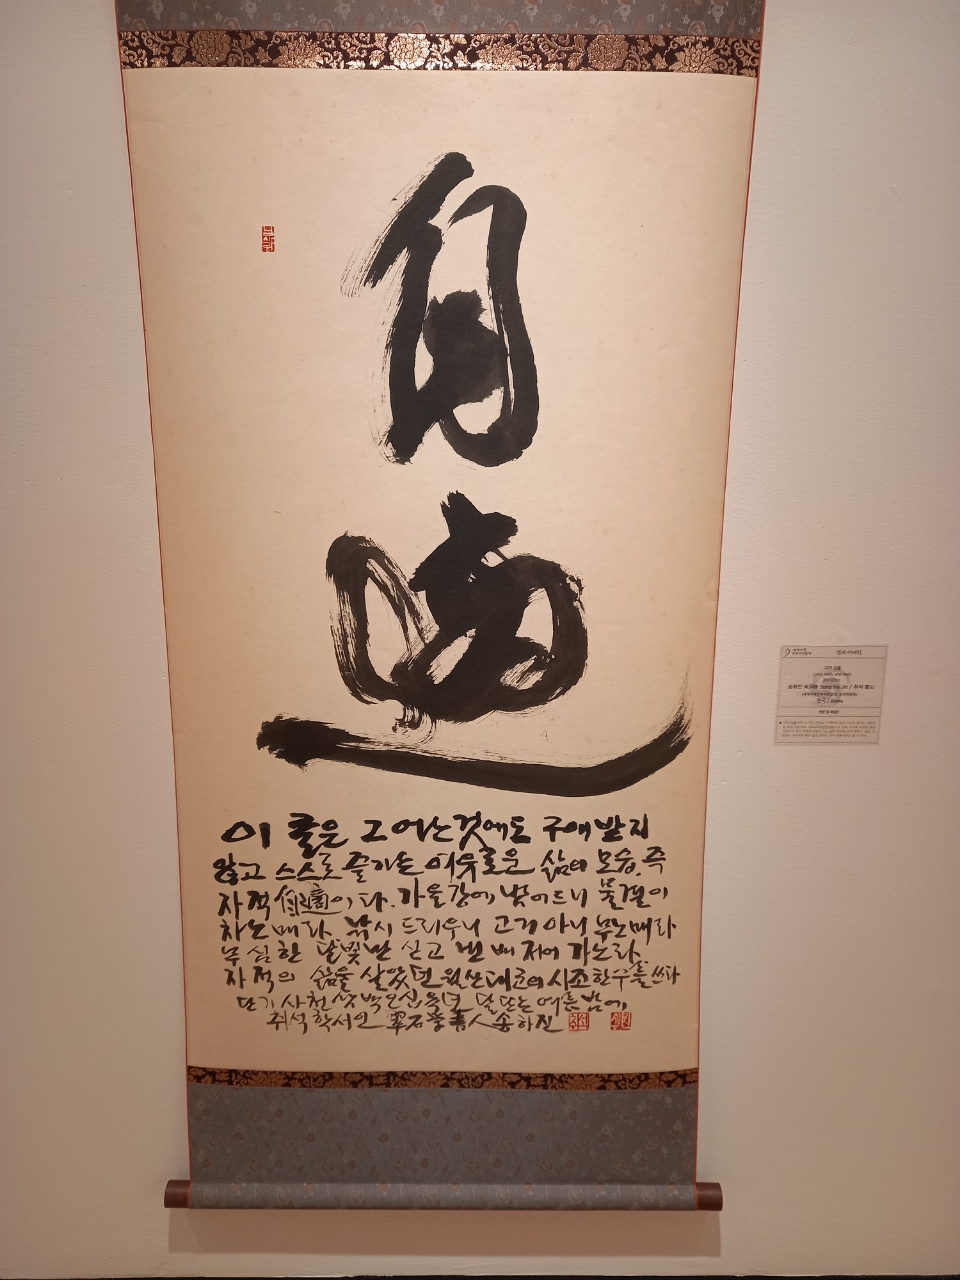 自
適
이 글은 그 어느것에도 구애받지
않고 스스로 즐기는 여유로운 삶의 모습, 즉
자적自適이다. 가을강에 밤이드니 물결이
차노매라. 낚시 드리우니 고기 아니 무노매라
무심한 달빛만 싣고 빈 배 저어 가노라.
자적의 삶을 살았던 월산대군의 시조 한구를 쓰다
단기 사천삼백오십육년 달뜨는 여름밤에
취석학서인 翠石學書人 송하진